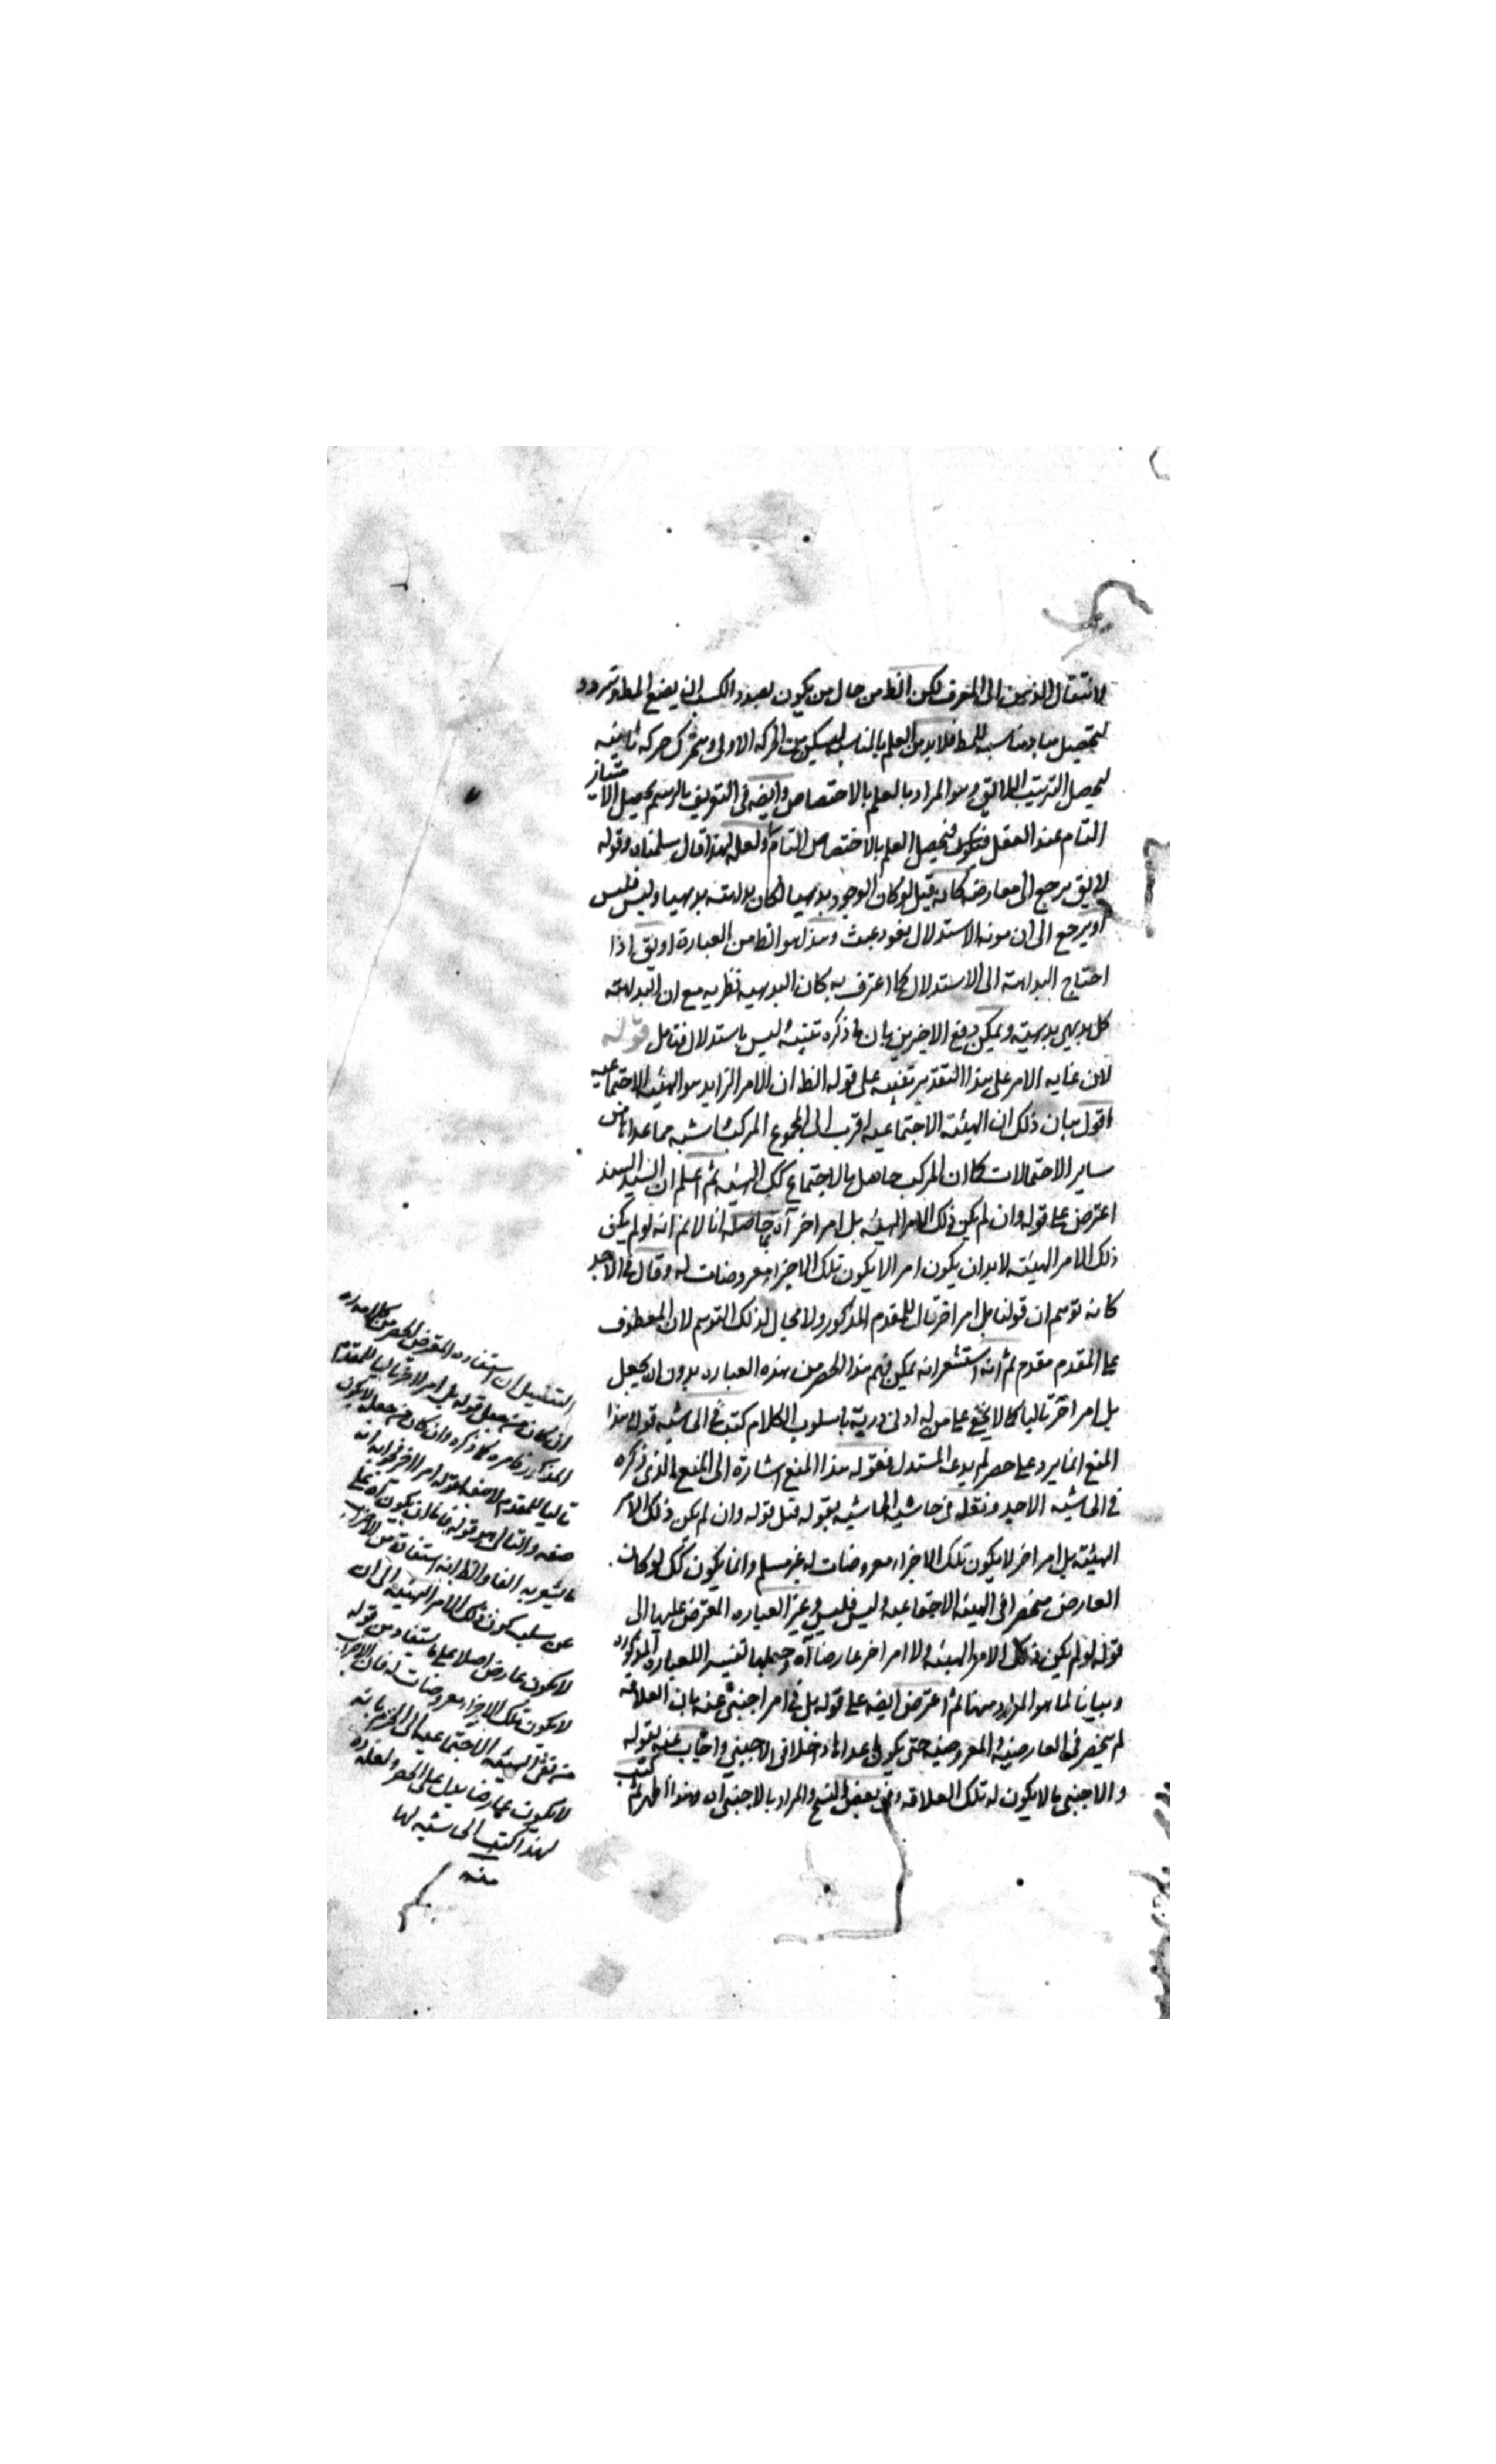 لانتقال الذهن الى المعرف لكن الظ من حال من يكون بصدد الكسب ان يضع المط ويتردد
لتحصيل مباد مناسبة للمط فلا بد من العلم بالمناسبة ليسكن من الحركة الاولى ويتحرك حركة ثانية
ليحصل الترتيب اللايق وهو المراد بالعلم بالاختصاص وايضه في التعريف بالرسم يحصل الامتياز
التام عند العقل فيحصل العلم بالاختصاص التام ولعله لهذا قال سلمناه وقوله
لا يق يرجع الى معارضة كانه قيل لو كان الوجود بديهيا لكان بداهته بديهيا وليس فليس
او يرجع الى ان مونة الاستدلال يعود عبث وهذا هو الظ من العبارة او يق اذا
احتاج البداهة الى الاستدلال كما اعترف به كان البديهية نظرية مع ان البداهة
كل بديهي بديهية ويمكن دفع الاخيرين بان ما ذكره تنبيه وليس باستدلال فتامل قوله
لان غاية الامر على هذا التقدير تنبيه على قوله الظ ان الامر الزايد هو الهيئة الاجتماعية
اقول بيان ذلك ان الهيئة الاجتماعية اقرب الى المجموع المركب مما عداها من
ساير الاحتمالات كما ان المركب حاصل بالاجتماع كك الهيئة ثم اعلم ان السيد السند
اعترض على قوله وان لم يكن ذلك الامر الهيئة بل امر اخر آه بما حاصله انا لا نم انه لو لم يكن
ذلك الامر الهيئة لا بد ان يكون امرا لا يكون تلك الاجزاء معروضات له وقال في
كانه توهم ان قولنا بل امر اخر تال للمقدم المذكور ولا مجال لذلك التوهم لان المعطوف
على المقدم مقدم ثم انه استشعر انه يمكن فهم هذا الحصر من هذه العبارة بدون ان يجعل
بل امر اخر تاليا كما لا يخفى على من له ادنى درية باسلوب الكلام كتب في الحاشية قوله هذا
المنع انما يرد على حصر لم يدعه المستدل فقوله هذا المنع اشارة الى المنع الذي ذكره
في الحاشية ونقله في حاشية الحاشية بقوله قيل قوله وان لم يكن ذلك الامر
الهيئة بل امر اخر لا يكون تلك الاجزاء معروضات له غير مسلم وانما يكون كك لو كان
العارض منحصرا في الهيئة الاجتماعية وليس فليس وغير العبارة المعترض عليها الى
قوله لو لم يكن ذلك الامر الهيئة ولا امر اخر عارضا آه وجعلها تفسيرا للعبارة المذكورة
وبيانا لما هو المراد منها ثم اعترض ايضه على قوله بل في امر اجنبي عنه بان العلاقة
لم ينحصر في العارضية والمعروضية حتى يكون ما عداها داخلا في الاجنبي واجاب عنه بقوله
والاجنبي ما لا يكون له تلك العلاقة وفي بعض النسخ والمراد بالاجنبي آه وهذا اظهر ثم كتب
التفصيل ان استفادة المعترض الحصر من كلامه
ان كان من جعل قوله بل امر اخر تاليا للمقدم
المذكور كما ذكره وان كان من جعل لا يكون
تاليا للمقدم لا صفة لقوله امر اخر
صفة والتالي هو قوله
ما يشعر به الفاء والظ انه استفاد من الاضراب
عن سلب كون ذلك الامر الهيئة الى ان
لا يكون عارض اصلا على ما يستفاد من قوله
لا يكون تلك الاجزاء معروضات له فان الاضراب
من نفي الهيئة الاجتماعية الى الجزم بانه
لا يكون عارضا يدل على الحصر ولعله
لهذا كتب الحاشية لها
منه